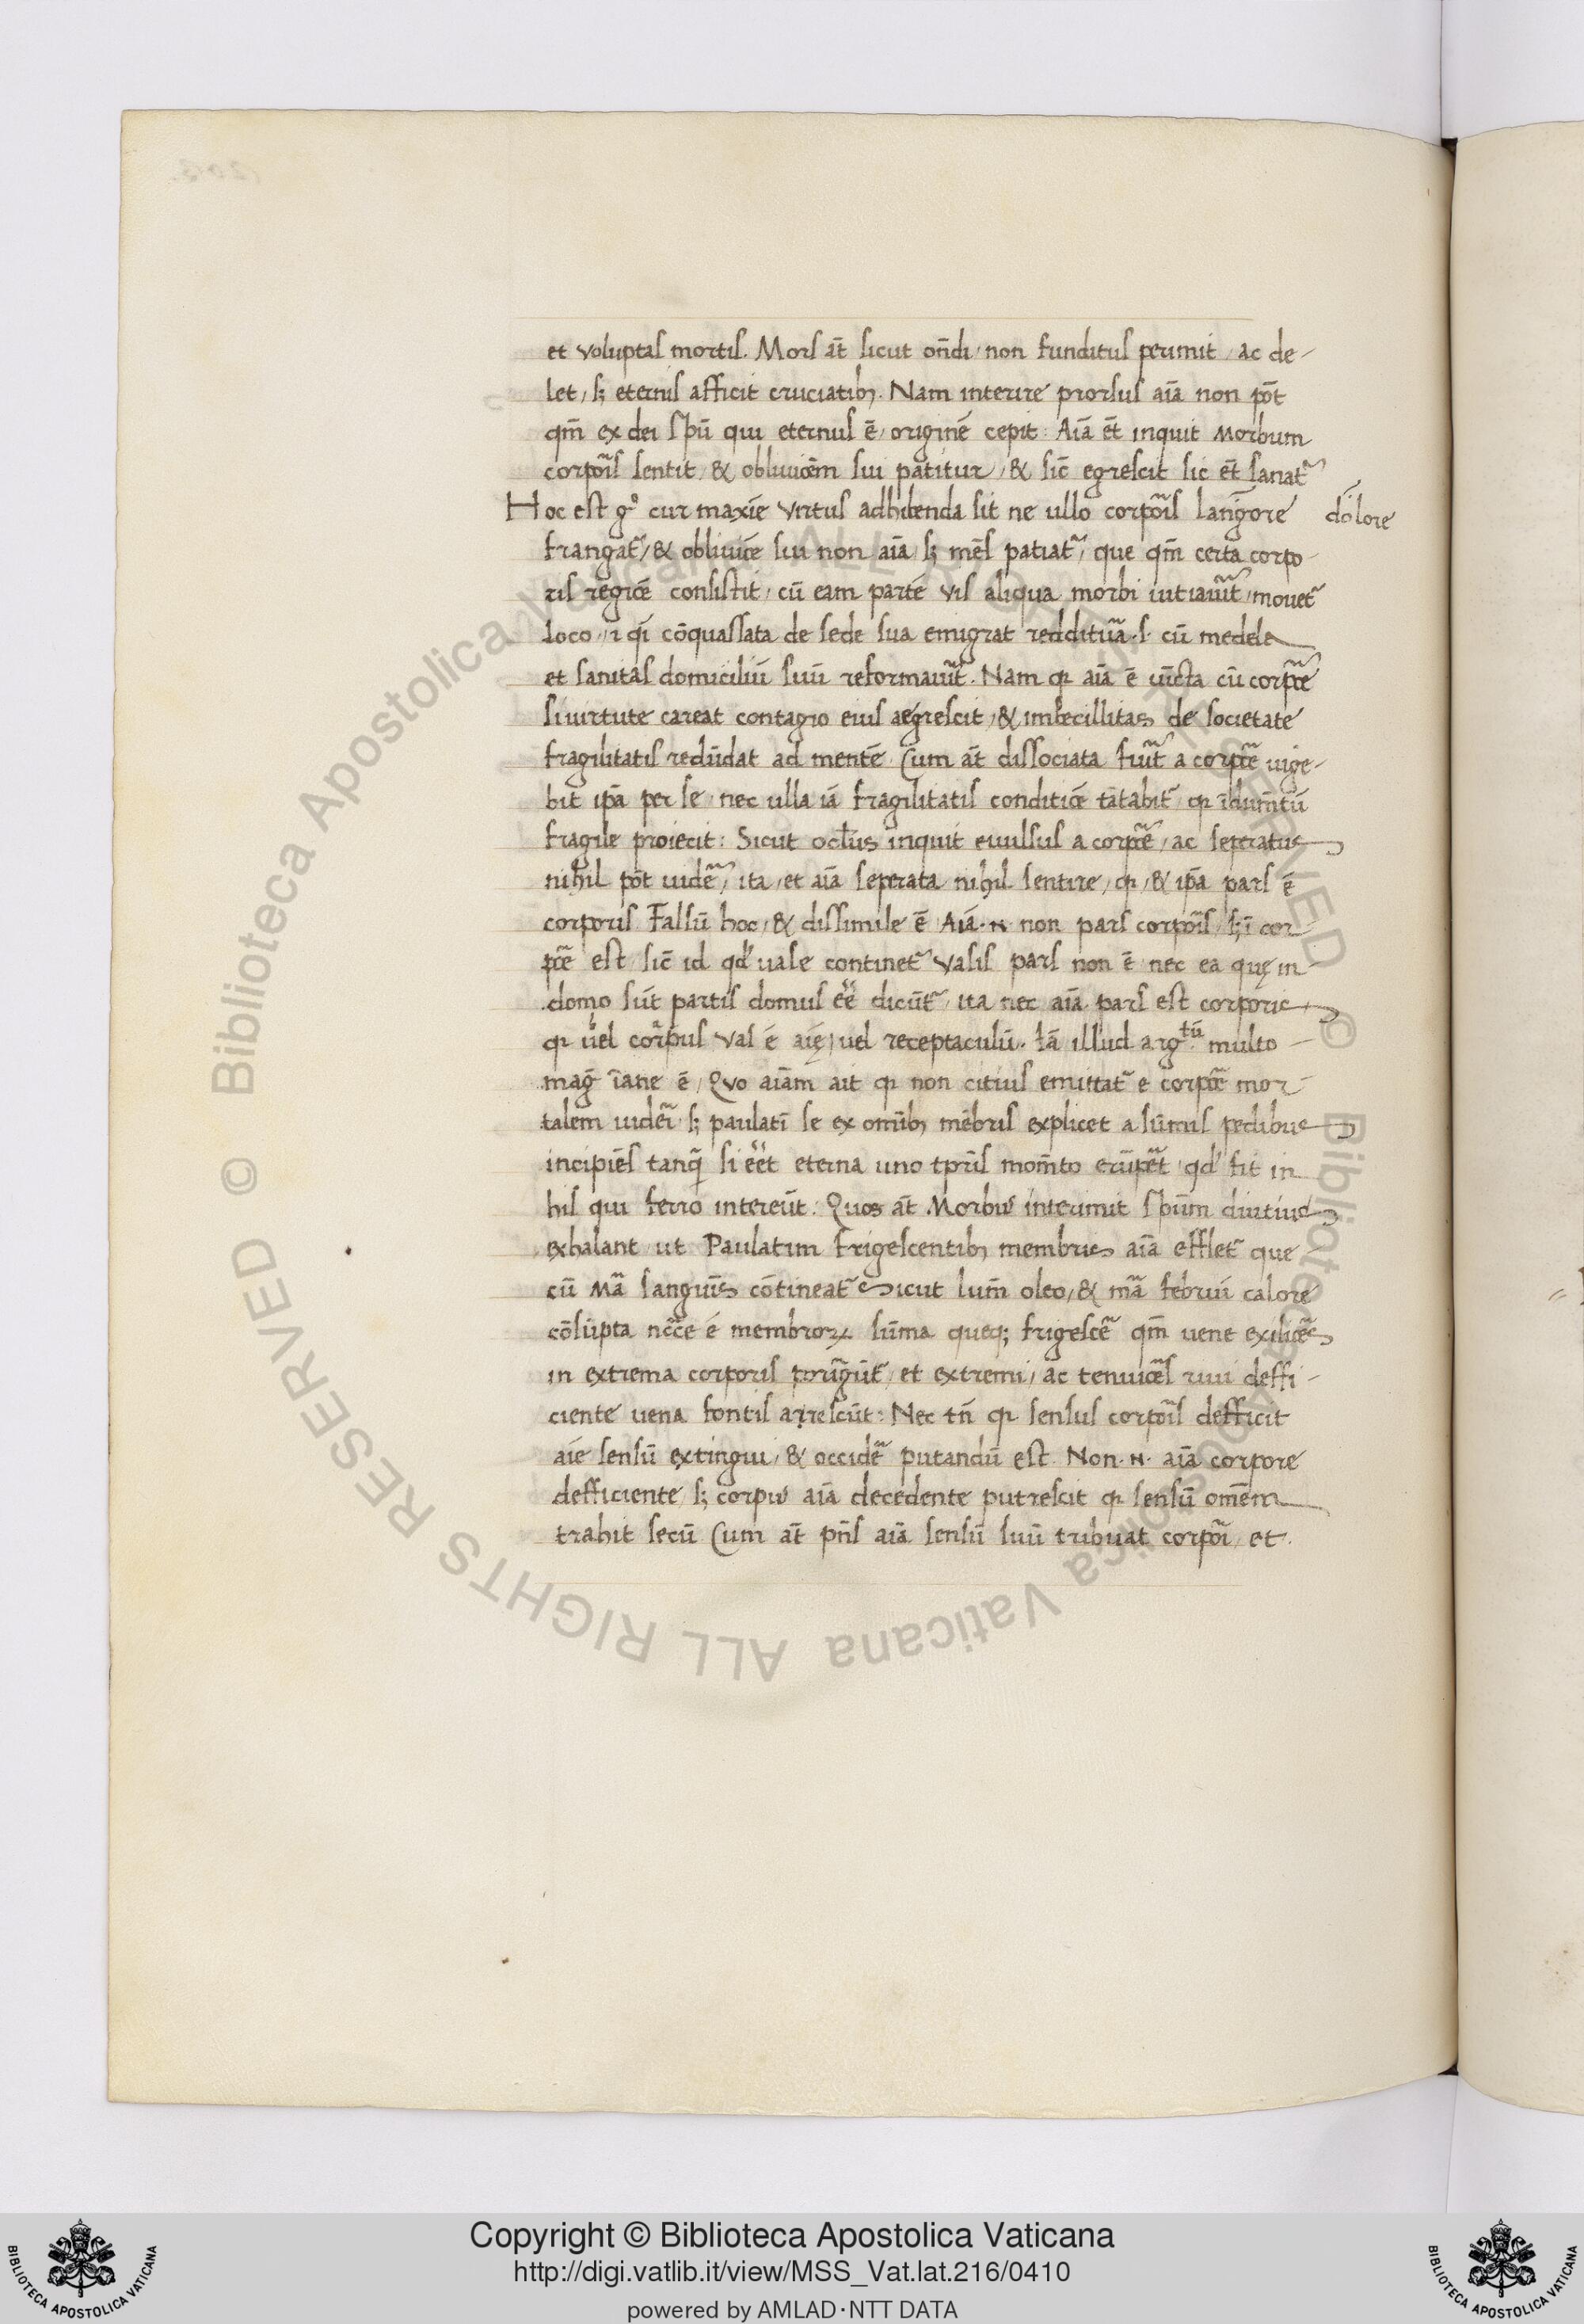 et voluptas mortis. Mors at̄ sicut on̄di / non funditus perimit / ac de-
let / sꝫ eternis afficit cruciatibꝫ. Nam interire prorsus aīa non pōt
qm̄ ex dei spū qui eternus ē / originē cepit: Aīa et̄ inquit Morbum
corpo͂is sentit / & oblivioēm sui patitur / & sic̄ egrescit sic et̄ sanat͂
Hoc est gͦ cur maxīe virtus adhibenda sit ne ullo corpo͂is langore dolore
frangat͂ / & oblivioē sui non aīa / sꝫ mēs patiat͂ / que qm̄ certa corpo-
ris regioē consistit / cū eam partē vis aliqua morbi vitiaver͂it / movet͂
loco / ⁊ q̄i cōquassata de sede sua emigrat redditura .s. cū medela
et sanitas domiciliū suū reformaver͂it. Nam qꝛ aīa ē vīcta cū corp͂e
si virtute careat contagio eius aegrescit / & imbecillitas de societate
fragilitatis redūdat ad mentē Cum at̄ dissociata fu͂it a corp͂e vige-
bit ip̄a per se / nec ulla iā fragilitatis conditioē tātabit͂ qꝛ īdum̄tū
fragile proiecit: Sicut oc̄lus inquit evulsus a corp͂e / ac seperatus
nihil pōt vide͂ / ita / et aīa seperata nihil sentire / qꝛ / & ip̄a pars ē
corporis Falsū hoc / & dissimile ē Aīa .N. non pars corpo͂is / sꝫ ī cor-
p͂e est / sic̄ id qd̓ vase continet͂ vasis pars non ē nec ea quę in
domo sūt partis domus e͂e dicūt͂ / ita nec aīa pars est corporis
qꝛ vel corpus vas ē aīę / vel receptaculū. Iā illud arg.tū multo
maḡ īane ē / Quo aīam ait qꝛ non citius emittat͂ e corp͂e mor-
talem vide͂i sꝫ paulatī se ex omībꝫ mēbris explicet a sūmis pedibus
incipiēs tanq̄ si e͂et eterna uno tp̄ris mom̄to erūpe͂t qd̓ fit in
his qui ferro intereūt: Quos at̄ Morbus interimit spūm diutius
exhalant ut Paulatim Frigescentibꝫ membris aīa efflet͂ que
cū m͂a sanguīs cōtineat͂ Sicut lum̄ oleo / & m͂a febriū calore
cōsūpta nc̄c̄e ē membroꝝ sūma queqꝫ frigesce͂ qm̄ vene exiliōes
in extrema corporis porrigūt͂ / et extremi / ac tenuio͂es rivi deffi-
ciente vena fontis arrescūt: Nec tn̄ qꝛ sensus corpo͂is defficit
aīe sensū extingui / & occide͂ putandū est. Non .N. aīa corpore
defficiente / sꝫ corpus aīa decedente putrescit qꝛ sensū omēm
trahit secū Cum at̄ pn̄s aīa sensū suū tribuat corpo͂i / et
Copyright © Biblioteca Apostolica Vaticana
http://digi.vatlib.it/view/MSS_Vat.lat.216/0410
powered by AMLAD·NTT DATA
BIBLIOTECA APOSTOLICA VATICANA
BIBLIOTECA APOSTOLICA VATICANA
© Biblioteca Apostolica Vaticana ALL RIGHTS RESERVED
© Biblioteca Apostolica Vaticana ALL RIGHTS RESERVED